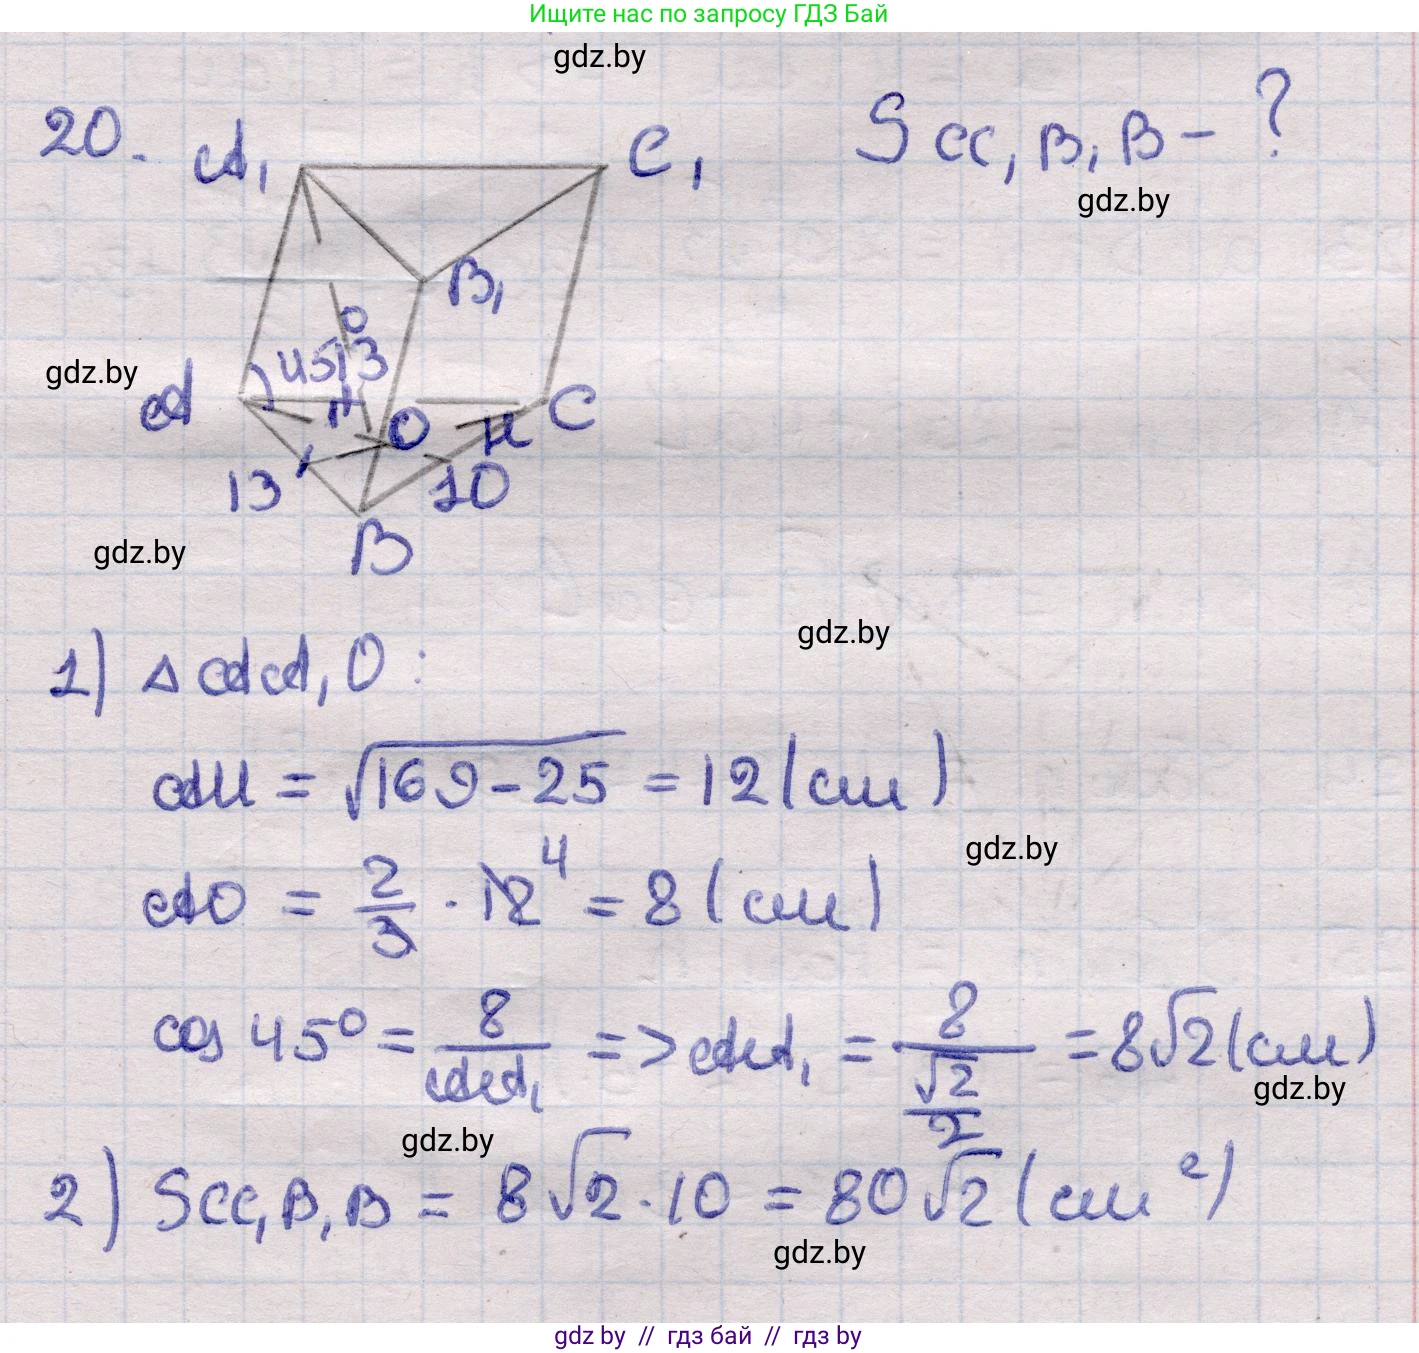 Ищите нас по запросу ГДЗ Бай
gdz.by
20. A₁ C₁ S CC₁B₁B - ?
gdz.by
B₁
45° 13
gdz.by
A O M C
13 10
B
gdz.by
gdz.by
1) △ AA₁O :
AM = √169-25 = 12 (см)
gdz.by
AO = 2/3 · 12 4 = 8 (см)
cos 45° = 8/AA₁ => AA₁ = 8/(√2/2) = 8√2 (см)
gdz.by
gdz.by
2) S CC₁B₁B = 8√2 · 10 = 80√2 (см²)
gdz.by
gdz by // гдз бай // гдз by